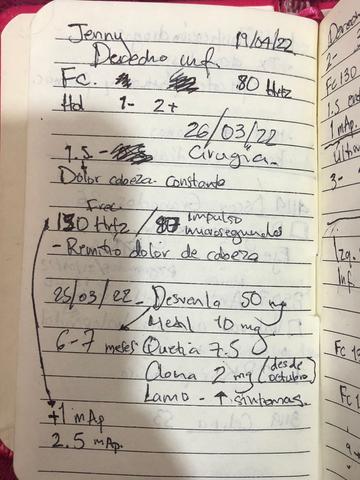 Jenny 19/04/22
Derecho inf.
Fc. 80 Hrtz
Hal 1- 2+
26/03/22
1.5 - Cirugia.
Dolor cabeza constante
Frec.
130 Hrtz / Impulso
microsegundos
- Remitio dolor de cabeza
25/03/22 - Desvenla 50 mg
10 mg
6-7 meses Quetia 7.5
Clona 2 mg (desde
octubre)
Lamo - ↑ sintomas.
+1 mAp
2.5 mAp.
Derecho
2-
Fc 130
1.5
1 mAp.
3-
Izq.
Inf.
Fc 13
Fc 1